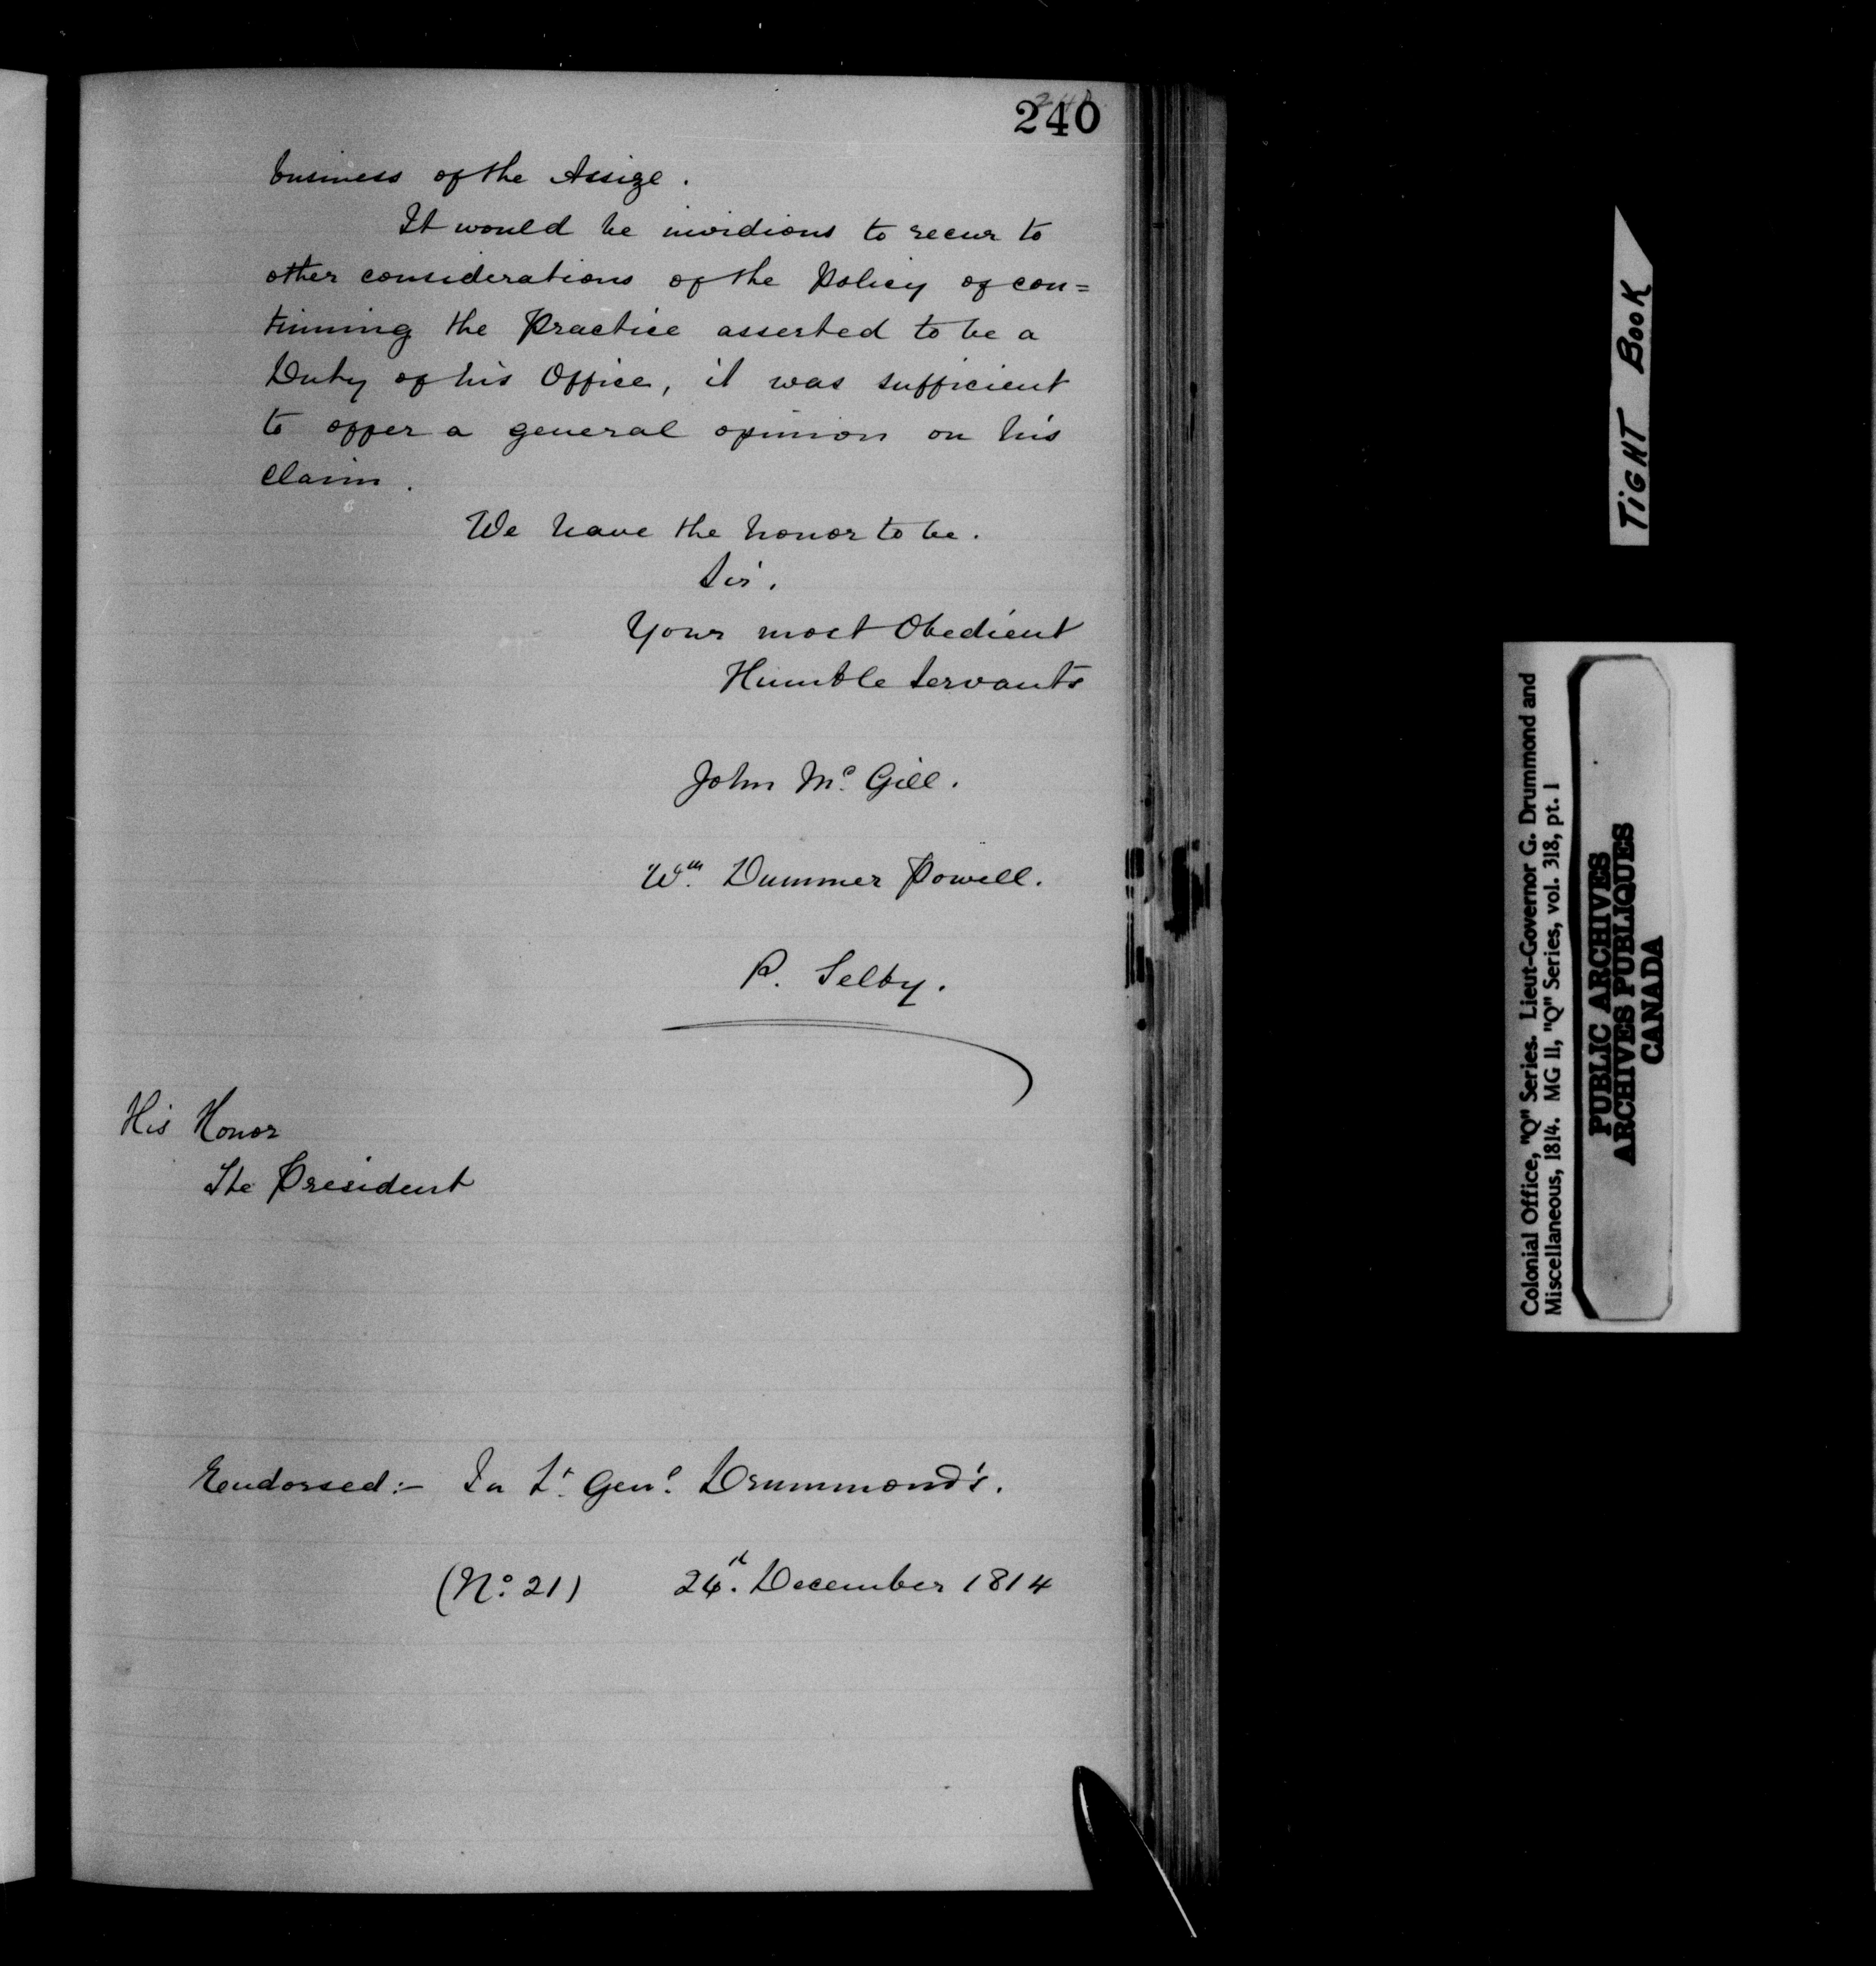 240
business of the Assize.
It would be invidious to recur to
other considerations of the Policy of con=
tinuing the Practice asserted to be a
Duty of his Office, it was sufficient
to offer a general opinion on his
Claim.
We have the honor to be.
Sir.
Your most Obedient
Humble Servants
John Mc. Gill.
Wm. Dummer Powell.
P. Selby.
His Honor
The President
Endorsed:- In Lt. Genl. Drummond's.
(No. 21) 24th. December 1814
TIGHT BOOK
Colonial Office, "Q" Series. Lieut-Governor G. Drummond and
Miscellaneous, 1814. MG 11, "Q" Series, vol. 318, pt. 1
PUBLIC ARCHIVES
ARCHIVES PUBLIQUES
CANADA